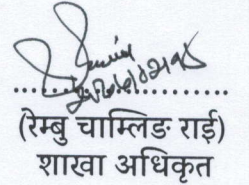 (रेम्बु चाम्लिङ राई)
शाखा अधिकृत